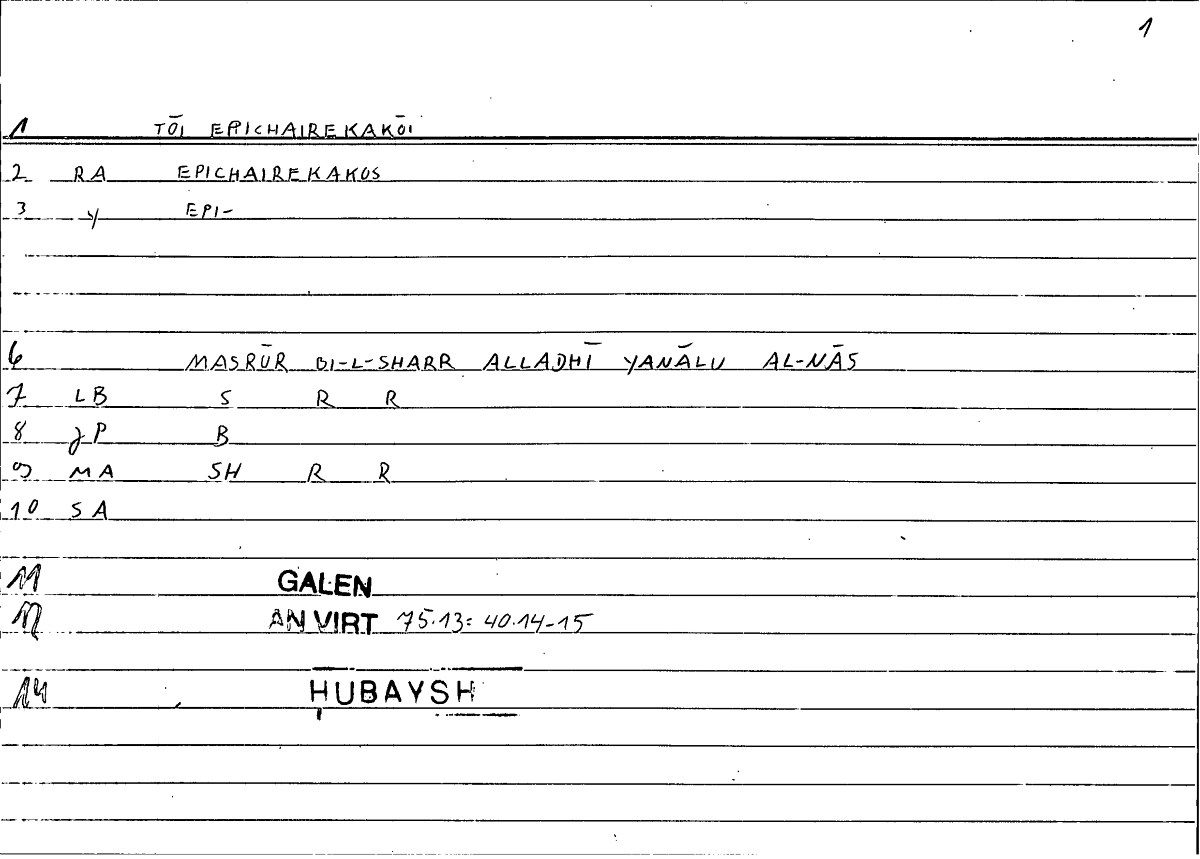 1
1 TŌI EPICHAIREKAKŌI
2 RA EPICHAIREKAKOS
3 y EPI-
6 MASRŪR BI-L-SHARR ALLADHĪ YANĀLU AL-NĀS
7 LB S R R
8 JP B
9 MA SH R R
10 SA
11 GALEN
12 AN VIRT 75.13: 40.14-15
14 HUBAYSH